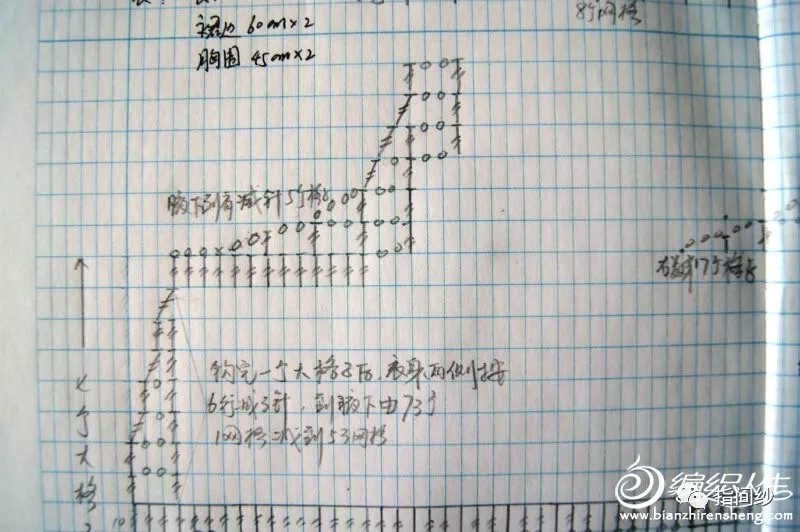 8行网格
裙边 60cm×2
胸围 45cm×2
腋下到肩减针5个格
右减17个格
钩完一个大格之后,衣身两侧按
6行减3针,到腋下由73个
网格减到53网格
大格
10
编织人生
指间纱
www.bianzhirensheng.com